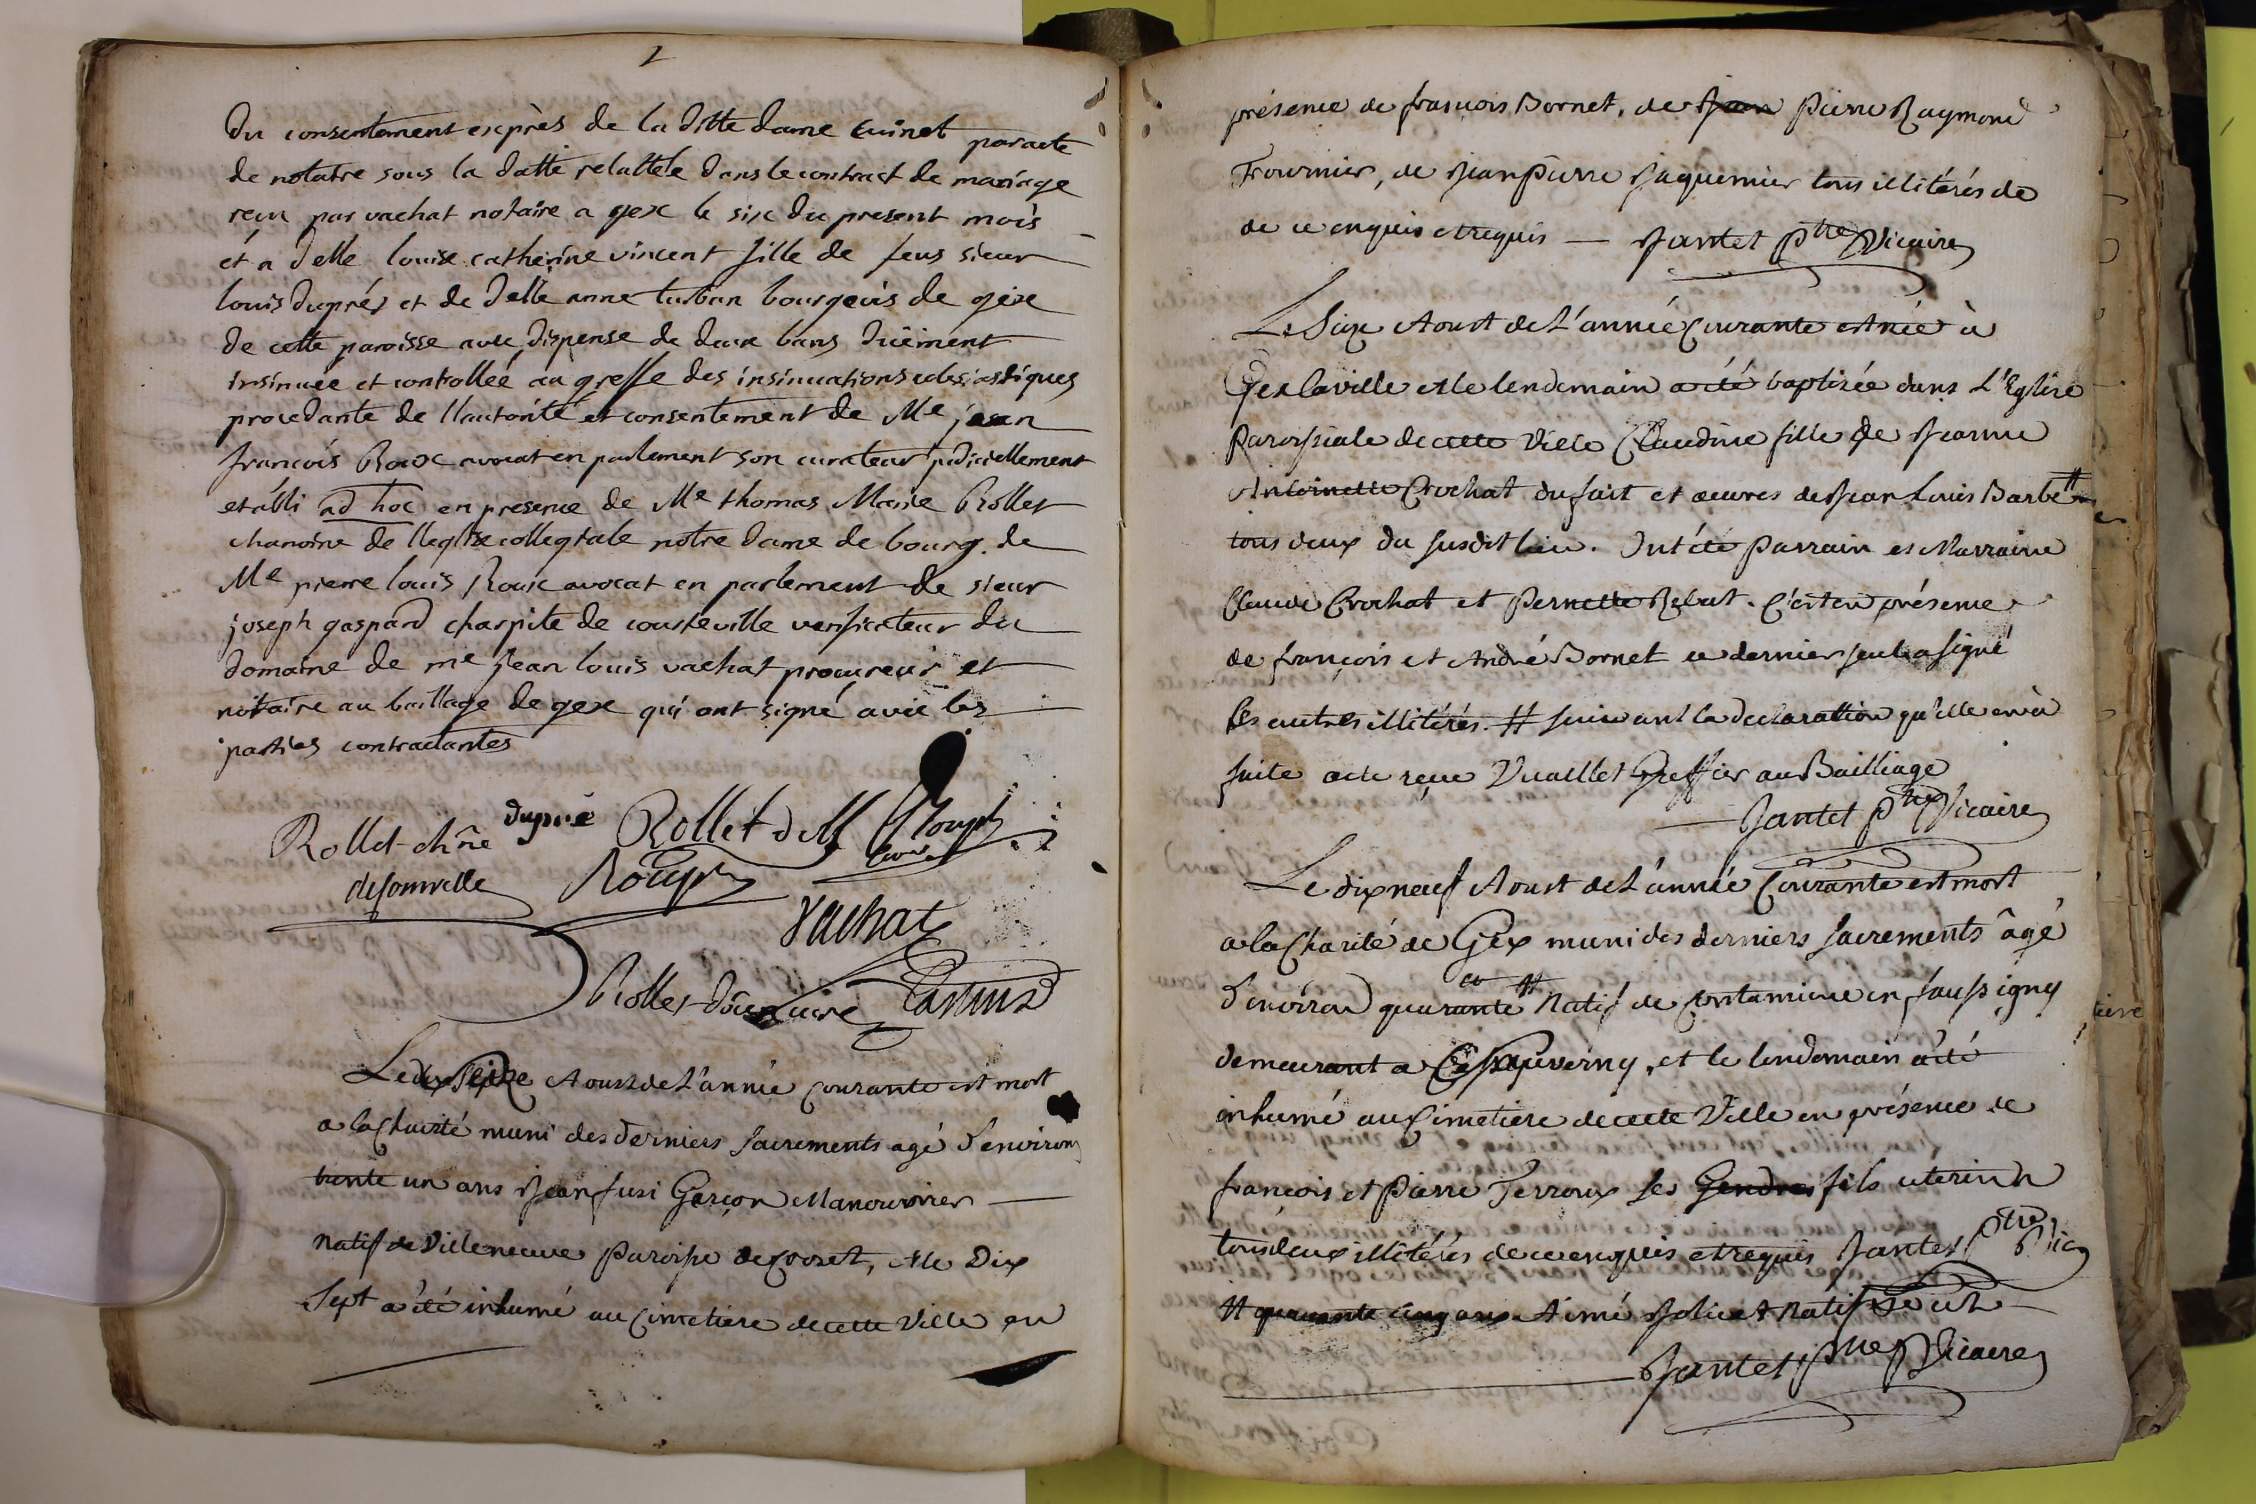 du consentement exprès de la ditte dame Cuinet par acte
de notaire sous la datte relattée dans le contract de mariage
reçu par vachat notaire a gex le six du present mois
et a delle louise catherine vincent fille de feus sieur
louis dupréz et de delle anne turban bourgeois de gex
de cette paroisse avec dispense de deux bans duëment
insinuée et controllée au greffe des insinuations eclesiastiques
procedante de l'lautorité et consentement de Me jean
francois Roux avocat en parlement son curateur judiciellement
etabli ad hoc en presence de Me thomas Marie Rollet
chanoine de lleglise collegiale notre dame de bourg. de
Me pierre louis Roux avocat en parlement de sieur
joseph gaspard charpite de courteville verificateur du
domaine de me jean louis vachat procureur et
notaire au baillage de gex qui ont signé avec les
parties contractantes
dupré Rollet d M
Rollet chne Roup
vachat
Rollet
Le seize Aoust de L'année Courante est mort
a la Charité muni des derniers Sacrements agé d'environ
trente un ans Jean fusi Garçon Manouvrier
natif de Villeneuve Paroisse de Crozet, et le Dix
Sept a été inhumé au Cimetiere de cette Ville en
présence de francois Bornet, de Jean Pierre Raymond
Fournier, de Jean Pierre Jaquemier tous illitérés de
de ce enquis et requis — Jantet Ptre Vicaire
Le Six Aoust de L'année Courante est née à
Gex la ville et le lendemain a été baptizée dans L'Eglise
Paroissiale de cette Ville Claudine fille de Jeanne
Antoinette Crochat du fait et œuvres de Jean Louis Barbe #
tous deux du susdit lieu. Ont été Parrain et Marraine
Claude Crochat et Pernette Belut. C'est en présence
de françois et André Bornet ce dernier seul a signé
les autres illitérés. # suivant la declaration qu'elle en a
faite acte reçue Vuaillet Greffier au Bailliage
— Jantet Ptre Vicaire
Le dix neuf Aoust de L'année Courante est mort
a la Charité de Gex muni des derniers Sacrements âgé
d'environ quarante # Natif de Contamine en faussigny
demeurant a Sauverny, et le lendemain a été
inhumé au Cimetiere de cette Ville en présence de
françois et Pierre Terroux ses Gendres fils uterin
tous deux illitérés de ce enquis et requis Jantet Ptre Vic
# quarante cinq ans Aimé Joliet Natif
Jantet Ptre Vicaire